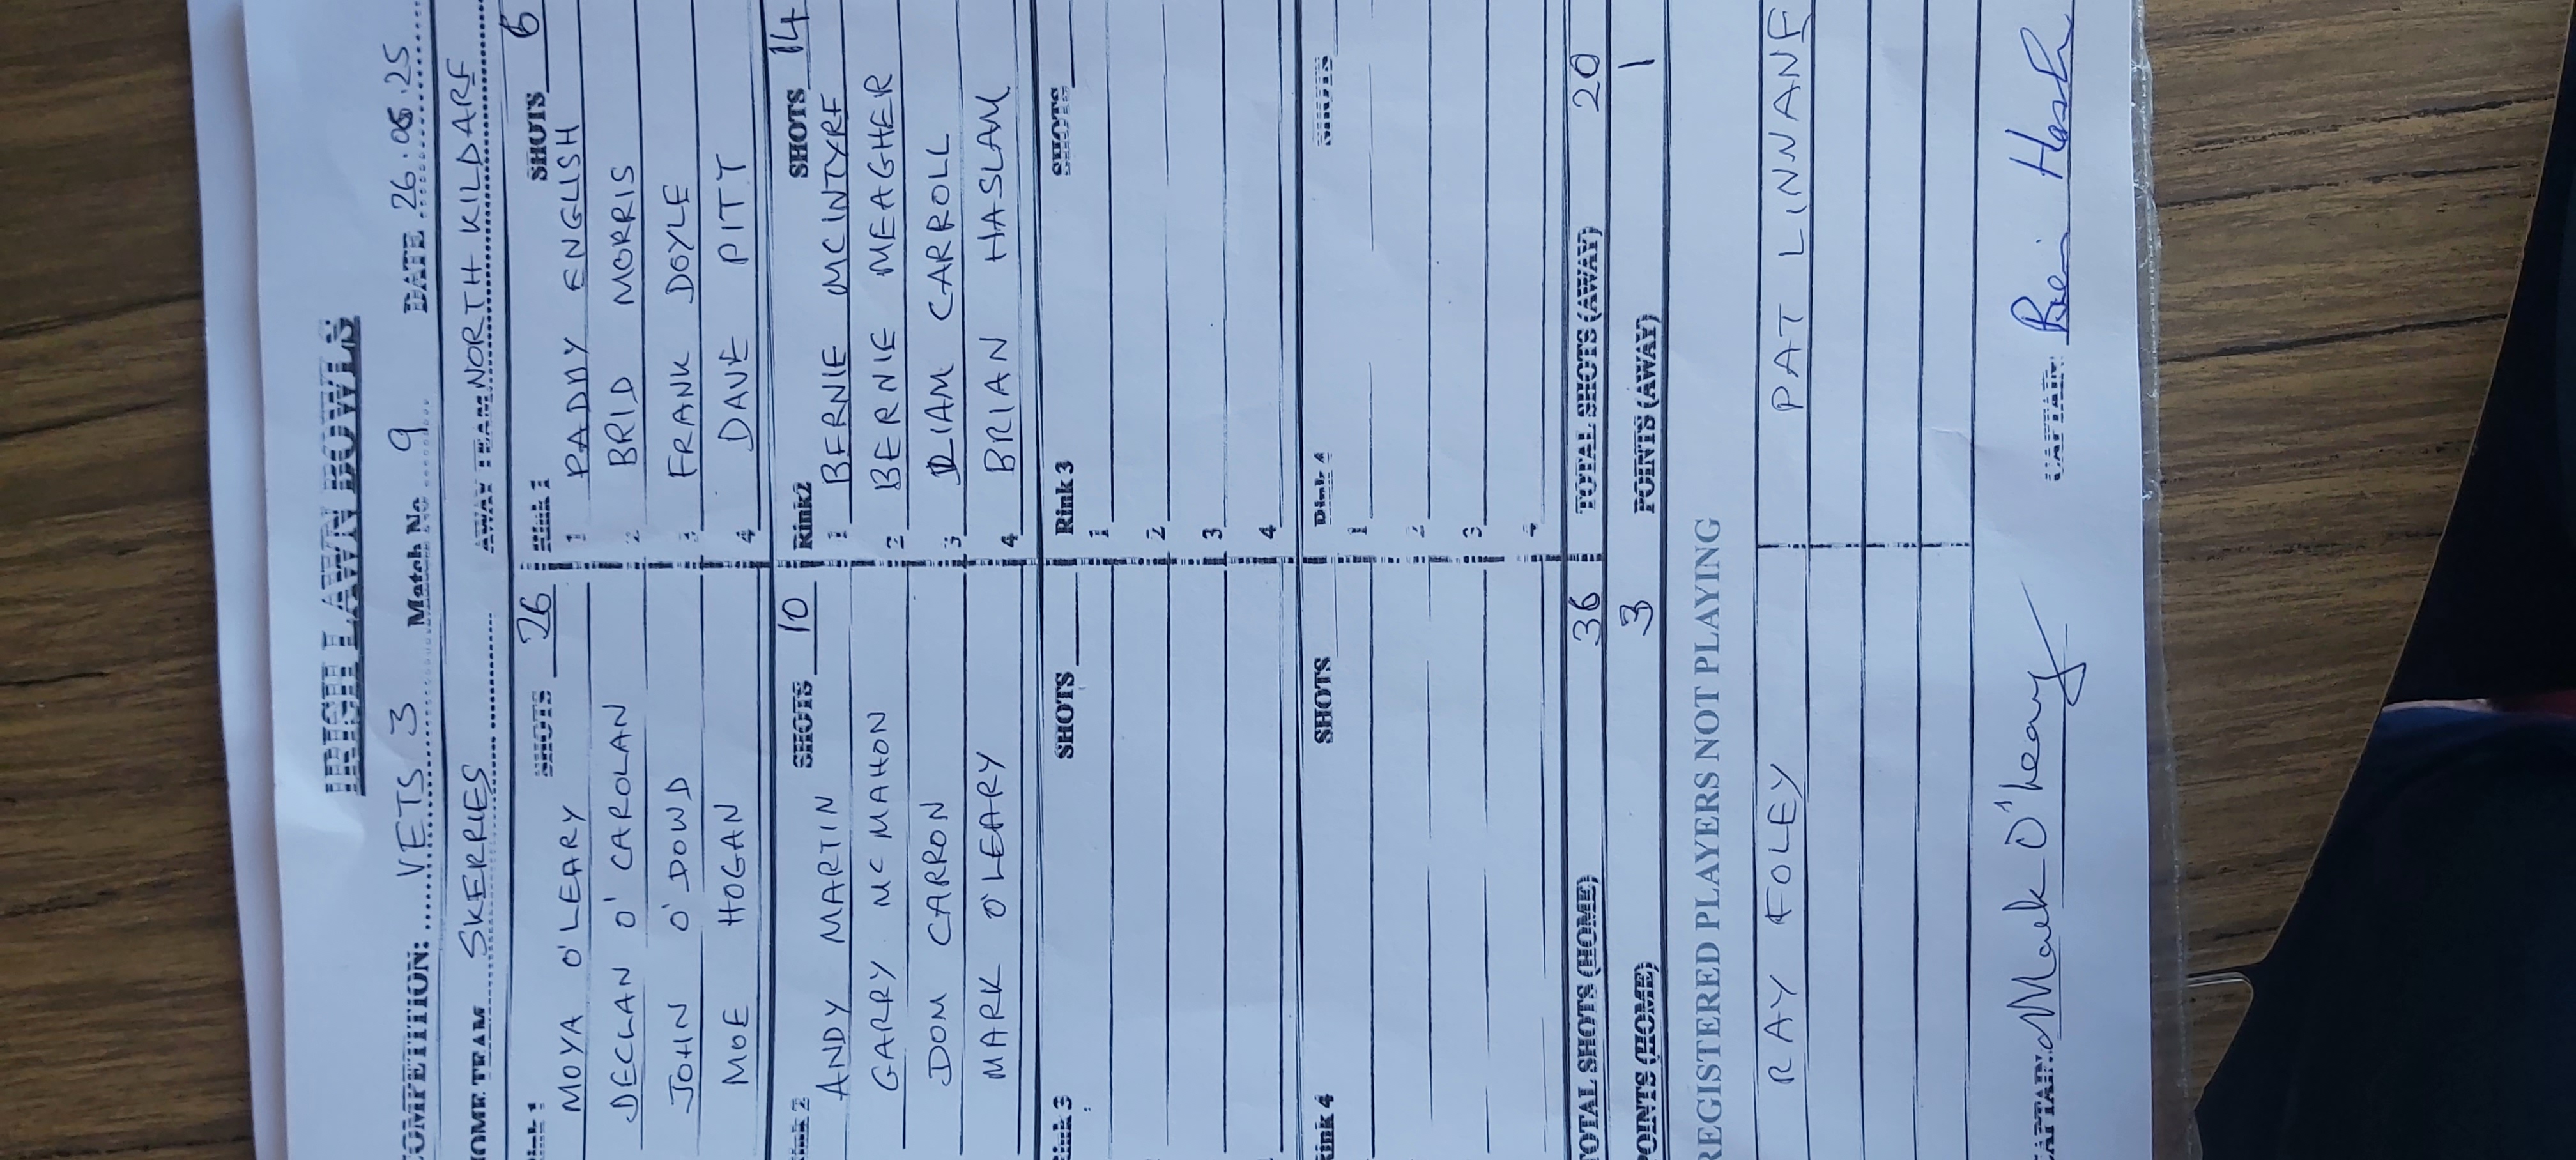 IRISH LAWN BOWLS
COMPETITION: VETS 3 Match No 9 DATE 26.08.25
HOME TEAM SKERRIES AWAY TEAM NORTH KILDARE
Rink 1 SHOTS 26 Rink 1 SHOTS 6
MOYA O'LEARY 1 PADDY ENGLISH
DECLAN O'CAROLAN 2 BRID MORRIS
JOHN O'DOWD 3 FRANK DOYLE
MOE HOGAN 4 DAVE PITT
Rink 2 SHOTS 10 Rink2 SHOTS 14
ANDY MARTIN 1 BERNIE MCINTYRE
GARRY MC MAHON 2 BERNIE MEAGHER
DOM CARRON 3 LIAM CARROLL
MARK O'LEARY 4 BRIAN HASLAM
Rink 3 SHOTS Rink 3 SHOTS
1
2
3
4
Rink 4 SHOTS Rink 4 SHOTS
1
2
3
4
TOTAL SHOTS (HOME) 36 TOTAL SHOTS (AWAY) 20
POINTS (HOME) 3 POINTS (AWAY) 1
REGISTERED PLAYERS NOT PLAYING
RAY FOLEY PAT LINNANE
CAPTAIN Mark O'Leary CAPTAIN